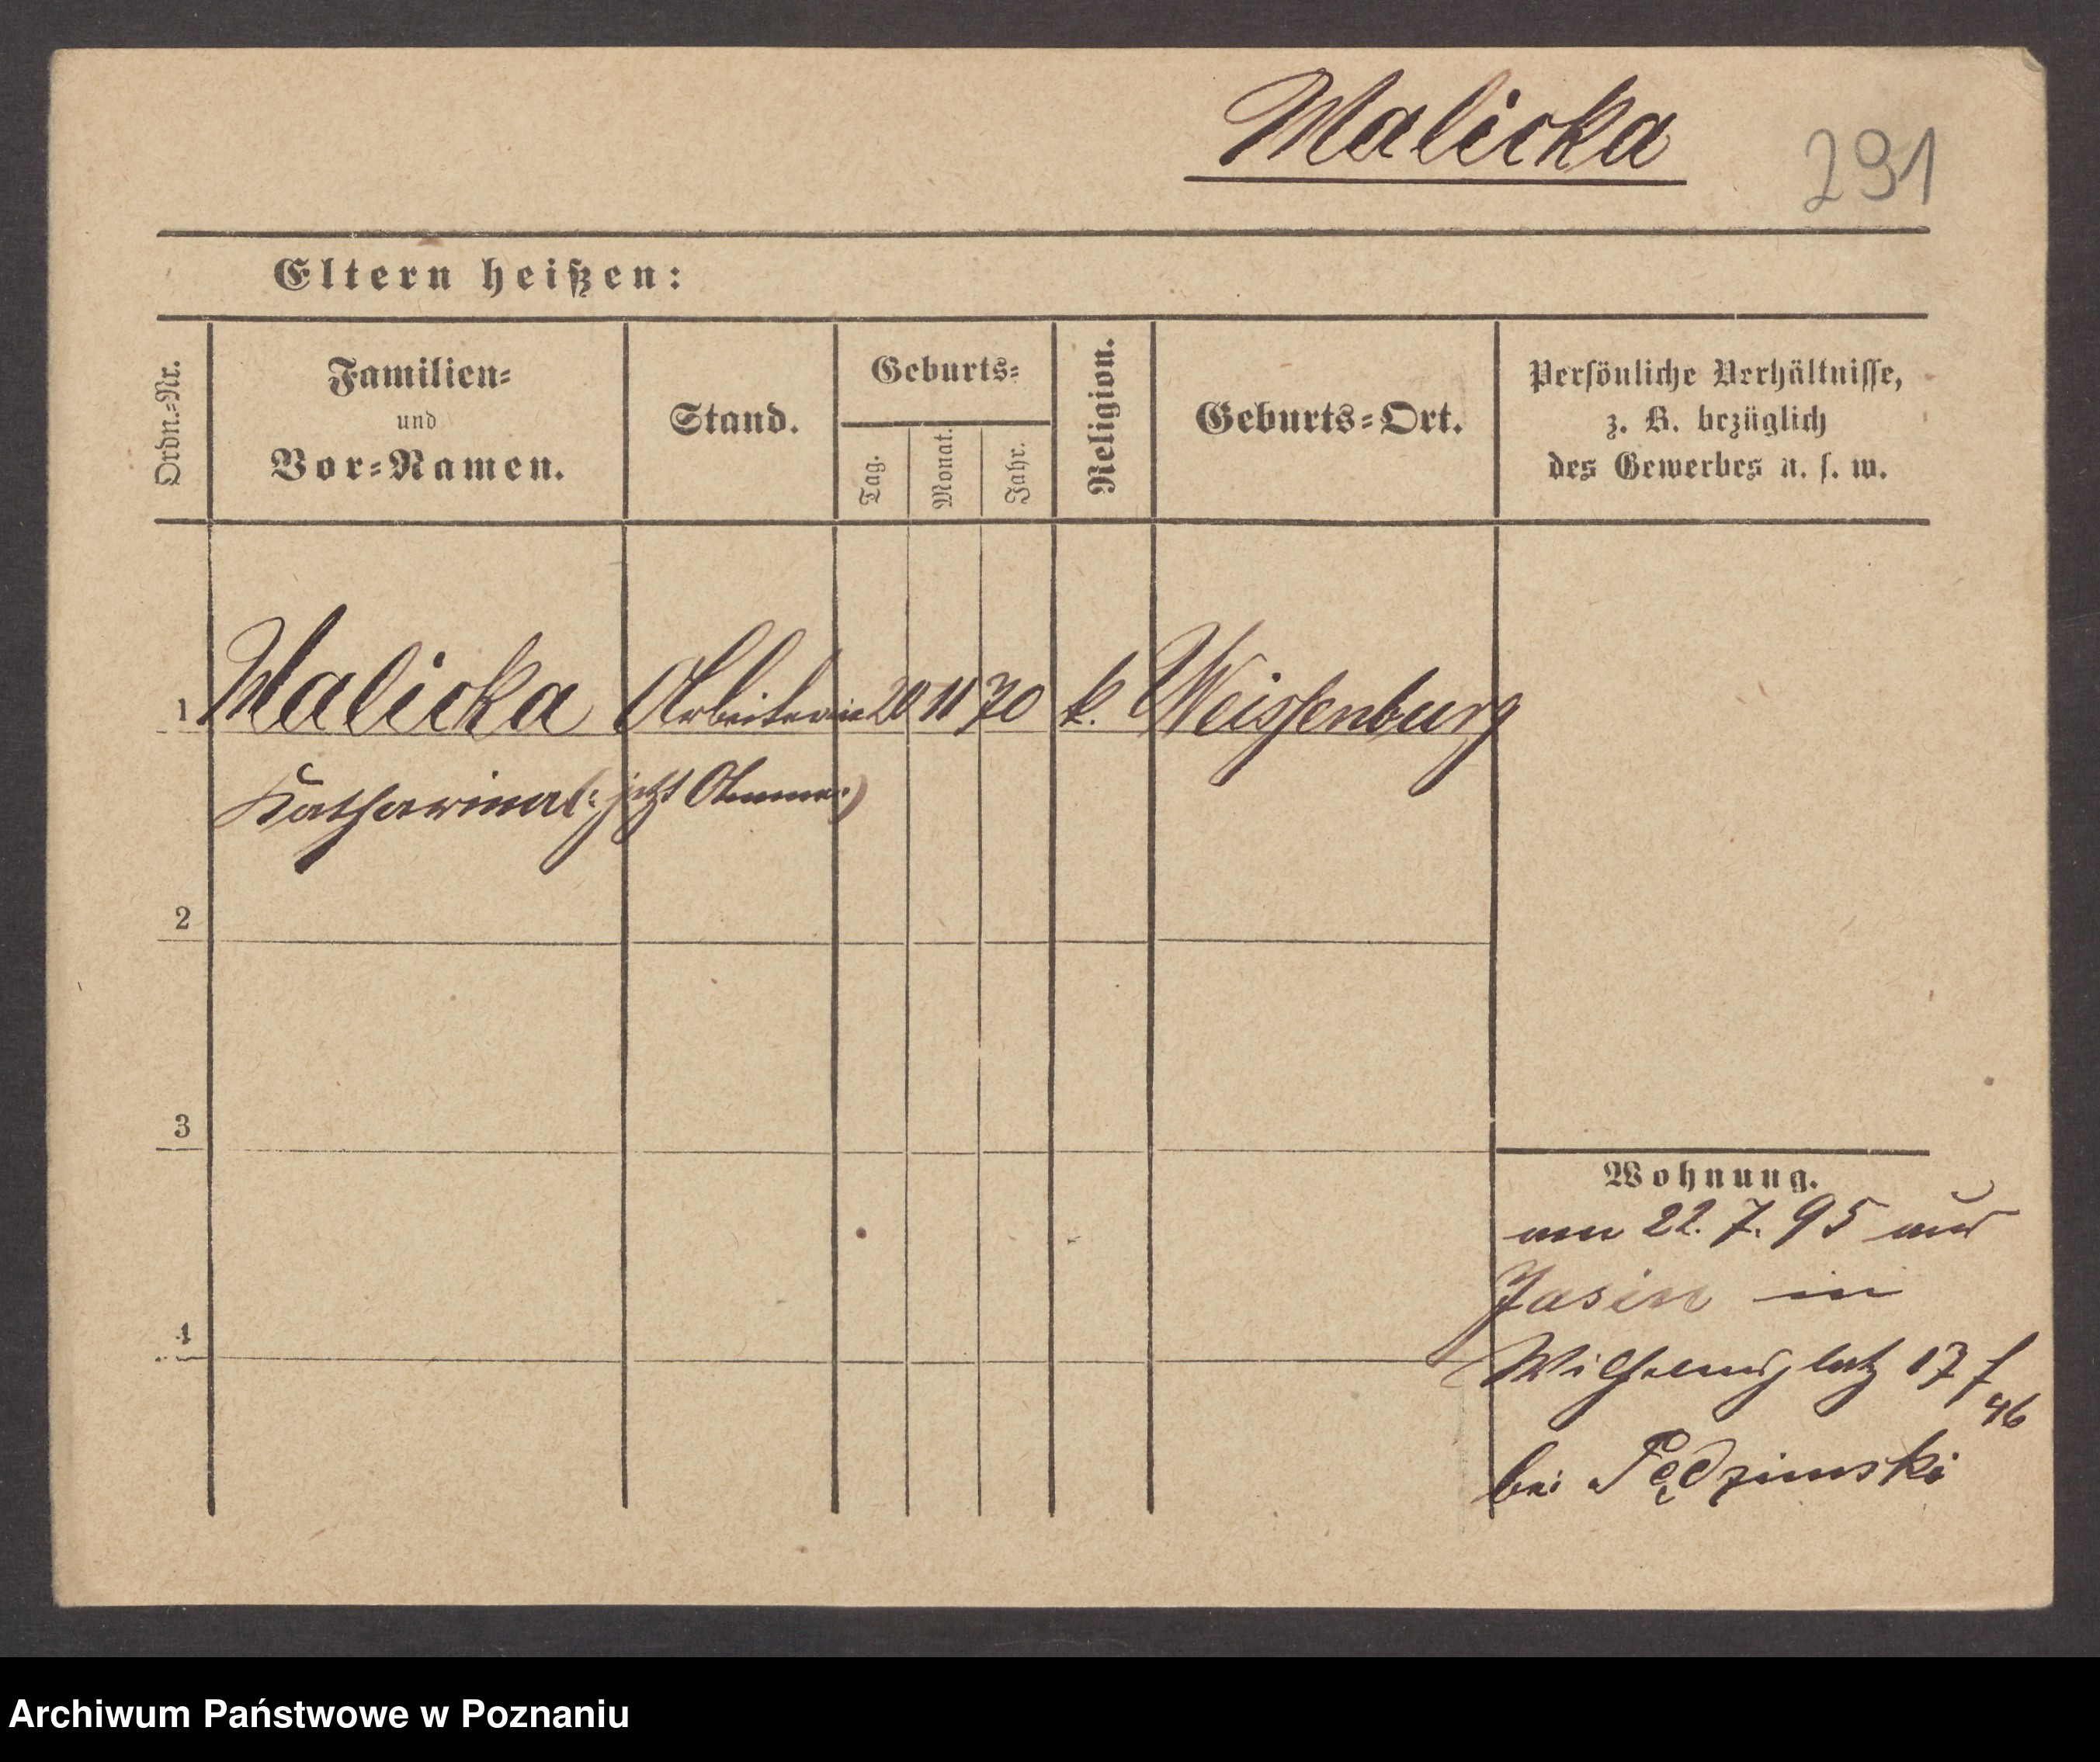 Malicka
291
Eltern heißen:
Ordn.-Nr.
Familien-
und
Vor-Namen.
Stand.
Geburts-
Tag.
Monat.
Jahr.
Religion.
Geburts-Ort.
Persönliche Verhältnisse,
z. B. bezüglich
des Gewerbes u. s. w.
1 Malicka Arbeiterin 20 11 70 k. Weissenburg
Katharina (: jetzt
2
3
4
Wohnung.
am 22. 7. 95 aus
Jasin in
Wilhelmsplatz 17
bei
Archiwum Państwowe w Poznaniu